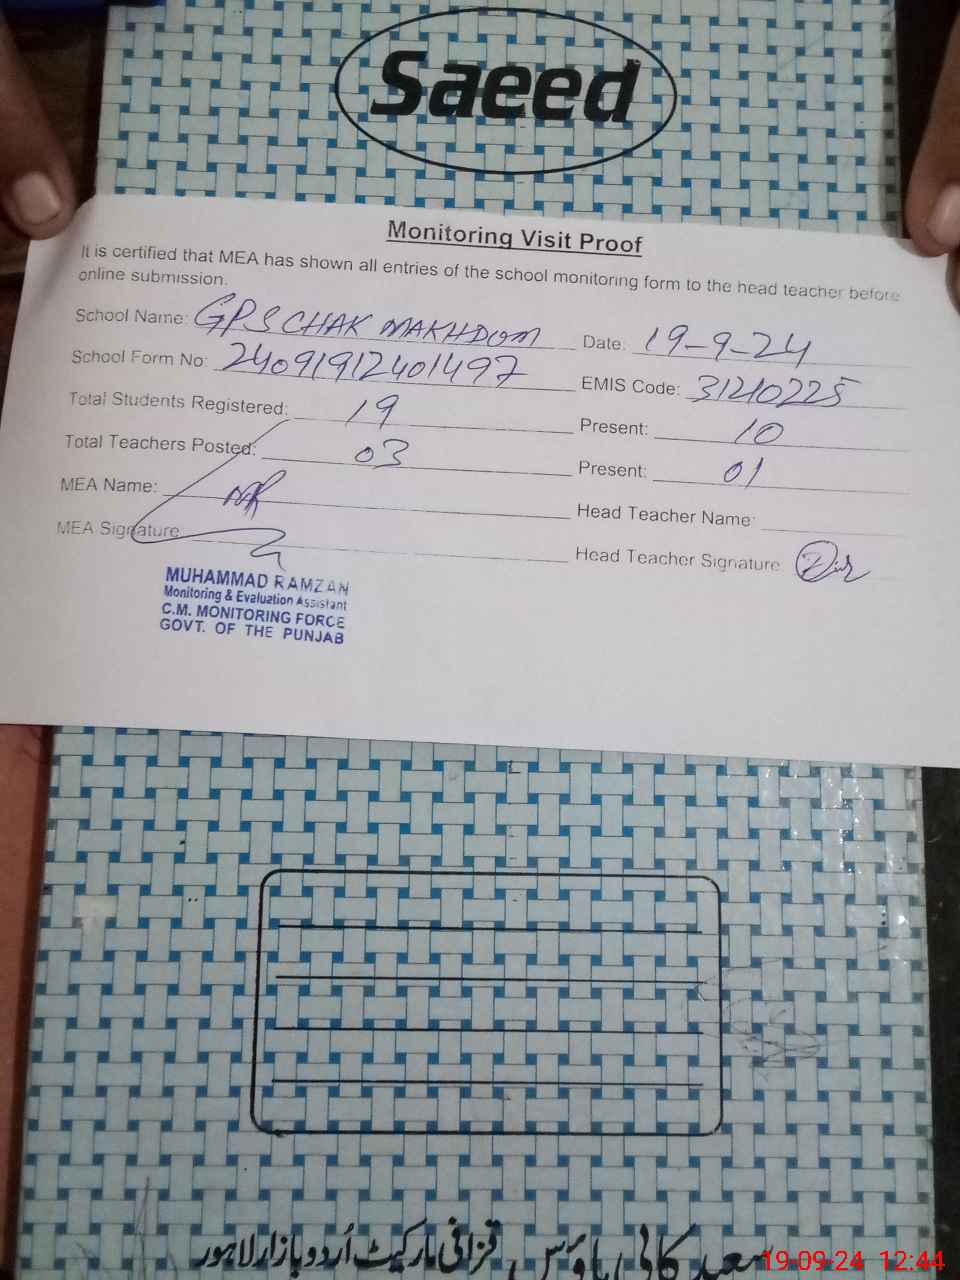 Saeed
Monitoring Visit Proof
It is certified that MEA has shown all entries of the school monitoring form to the head teacher before
online submission.
School Name: GPS CHAK MAKHDOM Date: 19-9-24
School Form No: 24091912401497 EMIS Code: 31210225
Total Students Registered: 19 Present: 10
Total Teachers Posted: 03 Present: 01
MEA Name: MR Head Teacher Name:
MEA Signature Head Teacher Signature
MUHAMMAD RAMZAN
Monitoring & Evaluation Assistant
C.M. MONITORING FORCE
GOVT. OF THE PUNJAB
سعید کاپی ہاؤس قذافی مارکیٹ اُردو بازار لاہور
19-09-24 12:44